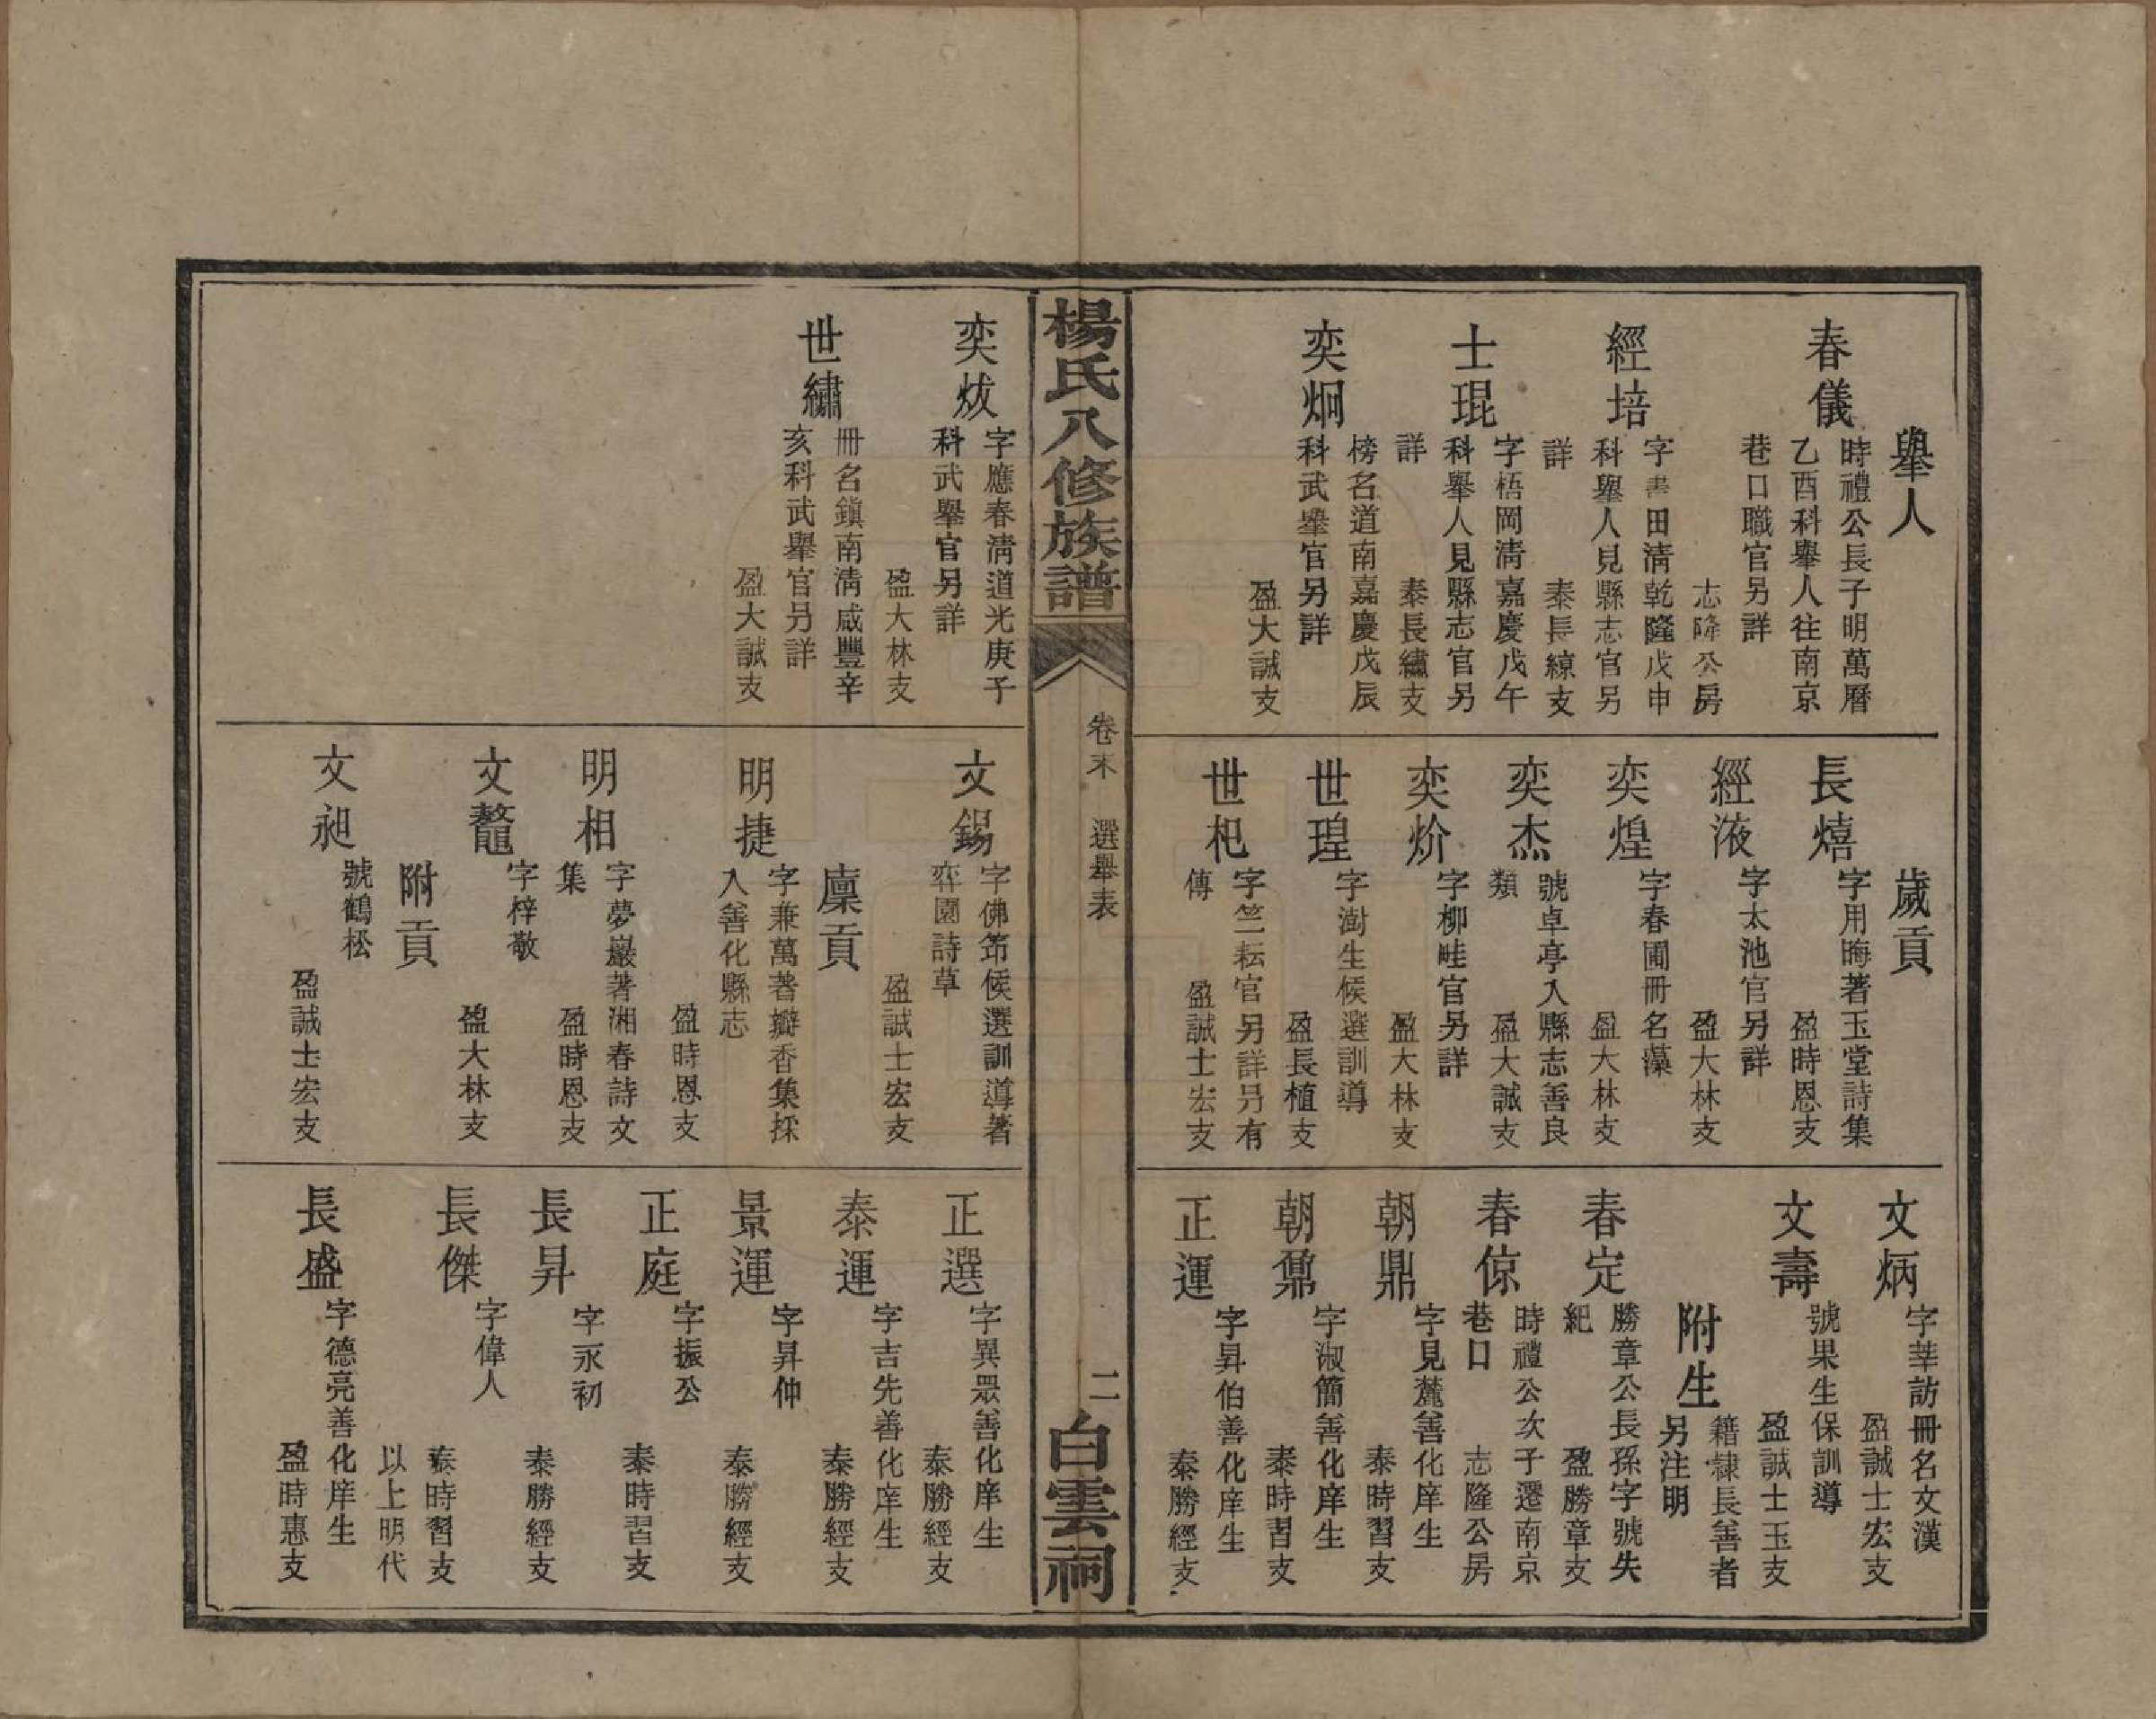 舉人
春儀
時禮公長子明萬曆
乙酉科舉人往南京
巷口職官另詳
志隆公房
經培
字書田淸乾隆戊申
科舉人見縣志官另
詳
泰長綡支
士琨
字梧岡淸嘉慶戊午
科舉人見縣志官另
詳
泰長繡支
奕炯
榜名道南嘉慶戊辰
科武舉官另詳
盈大誠支
歲貢
長熺
字用晦著玉堂詩集
盈時恩支
經液
字太池官另詳
盈大林支
奕煌
字春圃冊名藻
盈大林支
奕杰
號卓亭入縣志善良
類
盈大誠支
奕炌
字柳畦官另詳
盈大林支
世瑝
字澍生候選訓導
盈長植支
世杞
字竺耘官另詳另有
傳
盈誠士宏支
文炳
字莘訪冊名文漢
盈誠士宏支
文壽
號果生保訓導
盈誠士玉支
附生
籍隸長善者
另注明
春定
勝章公長孫字號失
紀
盈勝章支
春倞
時禮公次子遷南京
巷口
志隆公房
朝鼎
字見麓善化庠生
泰時習支
朝鼐
字淑簡善化庠生
泰時習支
正運
字昇伯善化庠生
泰勝經支
楊氏八修族譜
卷末
選舉表
二
白雲祠
奕炦
字應春淸道光庚子
科武舉官另詳
盈大林支
世繡
冊名鎭南淸咸豐辛
亥科武舉官另詳
盈大誠支
文錫
字佛笻候選訓導著
弈園詩草
盈誠士宏支
廩貢
明捷
字兼萬著瓣香集採
入善化縣志
盈時恩支
明相
字夢巖著湘春詩文
集
盈時恩支
文鼇
字梓敬
盈大林支
附貢
文昶
號鶴松
盈誠士宏支
正選
字異眾善化庠生
泰勝經支
泰運
字吉先善化庠生
泰勝經支
景運
字昇仲
泰勝經支
正庭
字振公
泰時習支
長昇
字永初
泰勝經支
長傑
字偉人
泰時習支
以上明代
長盛
字德亮善化庠生
盈時惠支